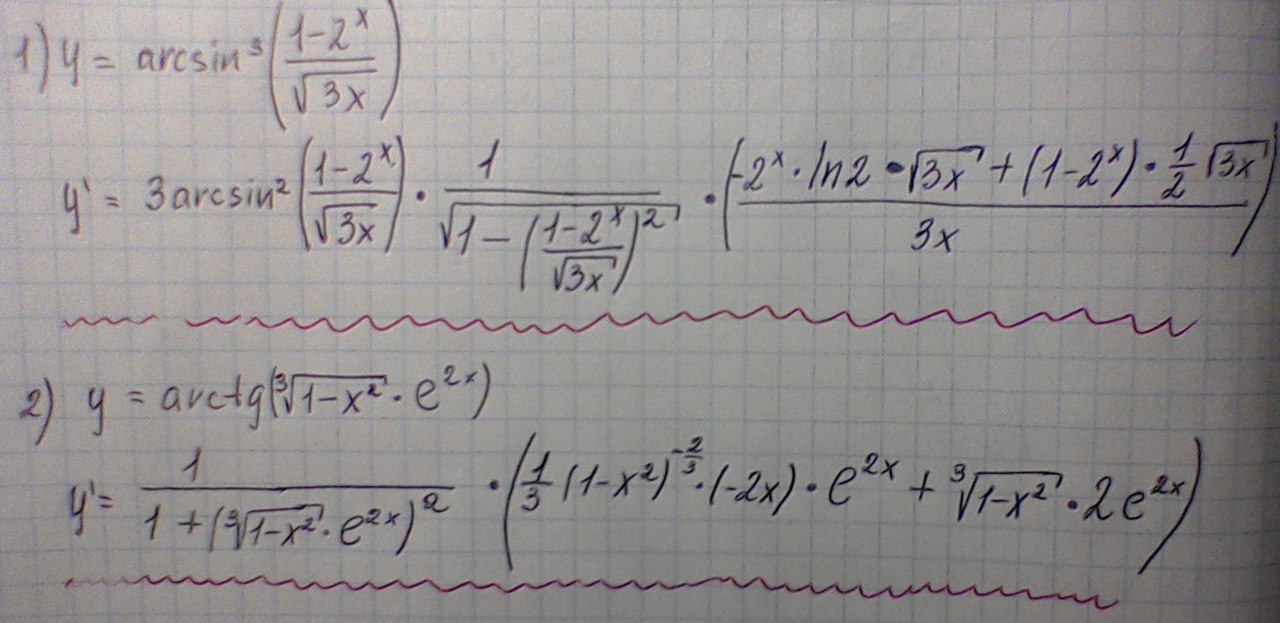 1) y = arcsin³((1-2ˣ)/(√3x))
y' = 3arcsin²((1-2ˣ)/(√3x)) · 1/(√(1-((1-2ˣ)/(√3x))²)) · ((-2ˣ·ln2·√3x + (1-2ˣ)·(1/2)√3x)/(3x))
2) y = arctg(∛(1-x²)·e²ˣ)
y' = 1/(1+(∛(1-x²)·e²ˣ)²) · ((1/3)(1-x²)^(-2/3)·(-2x)·e²ˣ + ∛(1-x²)·2e²ˣ)